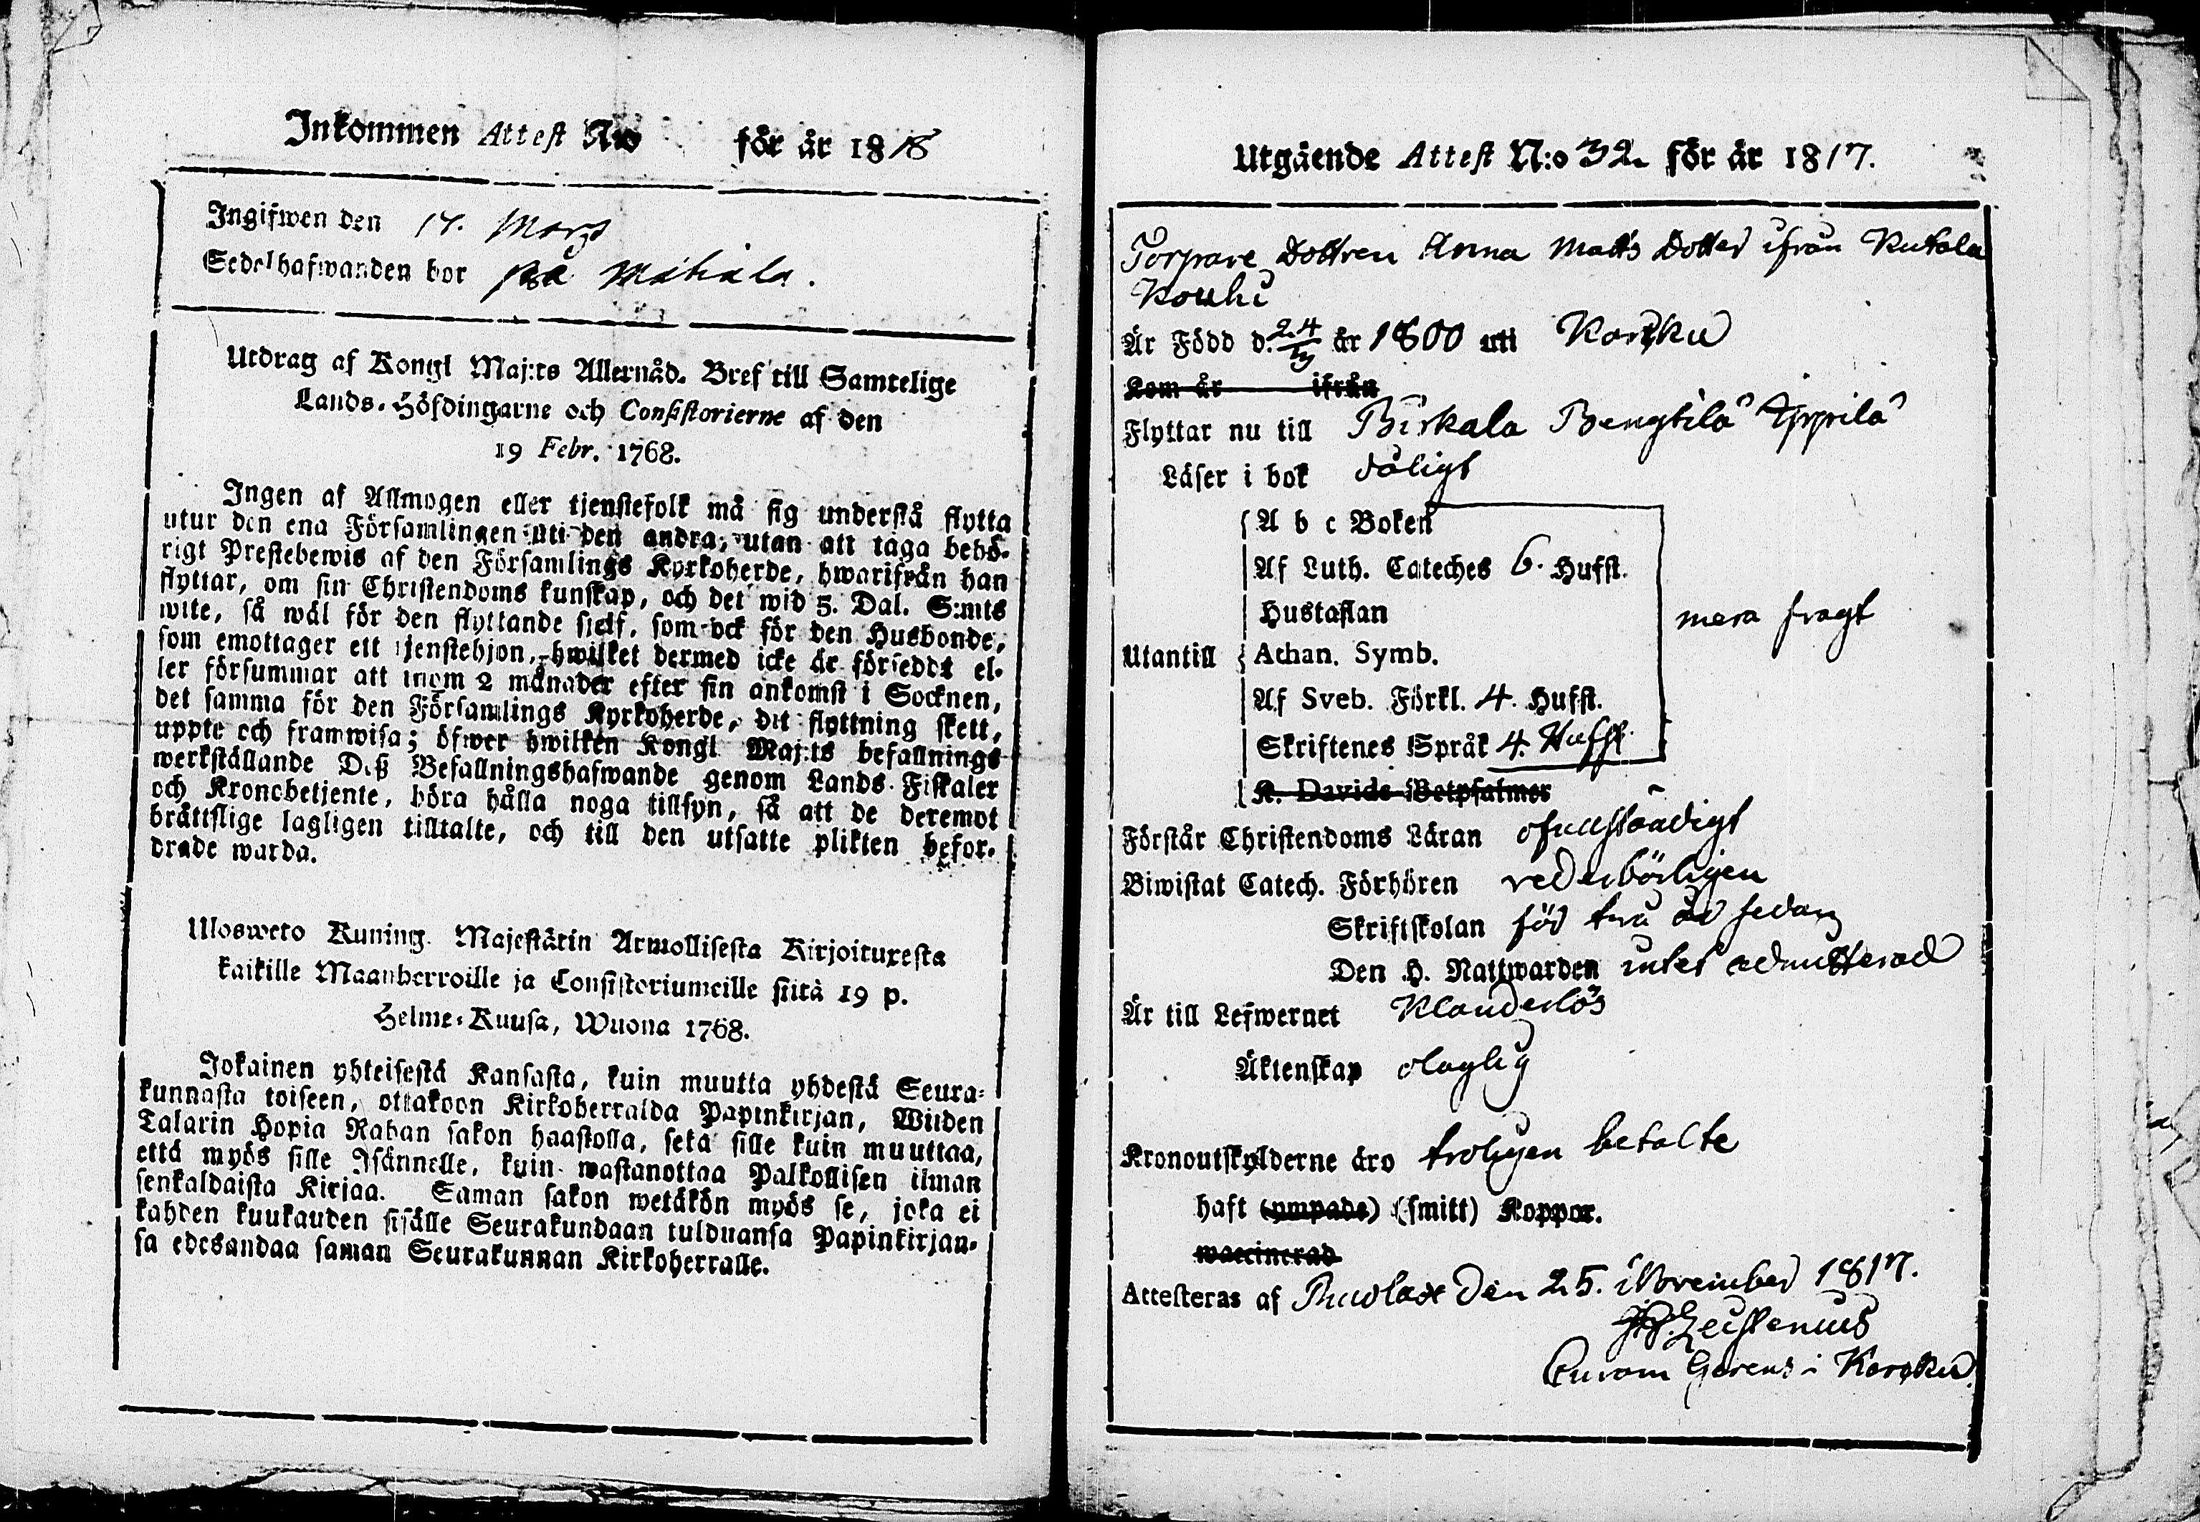 Inkommen Attest N:o för år 1818
Ingifwen den 17. Marz
Sedelhafwanden bor på Mihala.
Utdrag af Kongl Maj:ts Allernåd. Bref till Samtelige
Lands-Höfdingarne och Consistorierne af den
19 Febr. 1768.
Ingen af Allmogen eller tjenstefolk må sig understå flytta
utur den ena Församlingen uti den andra, utan att taga behö-
rigt Prestebewis af den Församlings Kyrkoherde, hwarifrån han
flyttar, om sin Christendoms kunskap, och det wid 5. Dal. S:mts
wite, så wäl för den flyttande sielf, som ock för den Husbonde,
som emottager ett tjenstehjon, hwilket dermed icke är förseddt el-
ler försummar att inom 2 månader efter sin ankomst i Socknen,
det samma för den Församlings Kyrkoherde, dit flyttning skett,
uppte och framwisa; öfwer hwilken Kongl Maj:ts befallnings
werkställande Diß Befallningshafwande genom Lands-Fiskaler
och Kronobetjente, böra hålla noga tillsyn, så att de deremot
brättslige lagligen tilltalte, och till den utsatte plikten befor-
drade warda.
Ulosweto Kuning. Majestätin Armollisesta Kirjoituxesta
kaikille Maanherroille ja Consistoriumeille siitä 19 p.
Helme-Kuusa, Wuona 1768.
Jokainen yhteisestä Kansasta, kuin muutta yhdestä Seura-
kunnasta toiseen, ottakoon Kirkoherralda Papinkirjan, Wiiden
Talarin Hopia Rahan sakon haastolla, sekä sille kuin muuttaa,
että myös sille Isännelle, kuin wastanottaa Palkollisen ilman
senkaldaista Kirjaa. Saman sakon wetäkön myös se, joka ei
kahden kuukauden sisälle Seurakundaan tulduansa Papinkirjan-
sa edesandaa saman Seurakunnan Kirkoherralle.
Utgående Attest N:o 32. för år 1817.
Torpare Dottren Anna Matts Dotter ifrån Kutala
Kouhi
Är Född d. 24/ år 1800 uti Karkku
Kom år ifrån
Flyttar nu till Birkala Bengtilä Epprilä
Läser i bok dåligt
A b c Boken
Af Luth. Cateches 6. Hufst.
Hustaflan
mera svagt
Utantill Athan. Symb.
Af Sveb. Förkl. 4. Hufst.
Skriftenes Språk 4. Hufst.
K. Davids Betpsalmer
Förstår Christendoms Läran ofullständigt
Biwistat Catech. Förhören vederbörligen
Skriftskolan för två år sedan
Den H. Nattwarden intet admitterad
Är till Lefwernet Klanderlös
Äktenskap olaglig
Kronoutskylderne äro troligen betalte
haft (ympade) (smitt) Koppor.
waccinerad
Attesteras af den 25. November 1817.
Curam Gerens i Karkku.